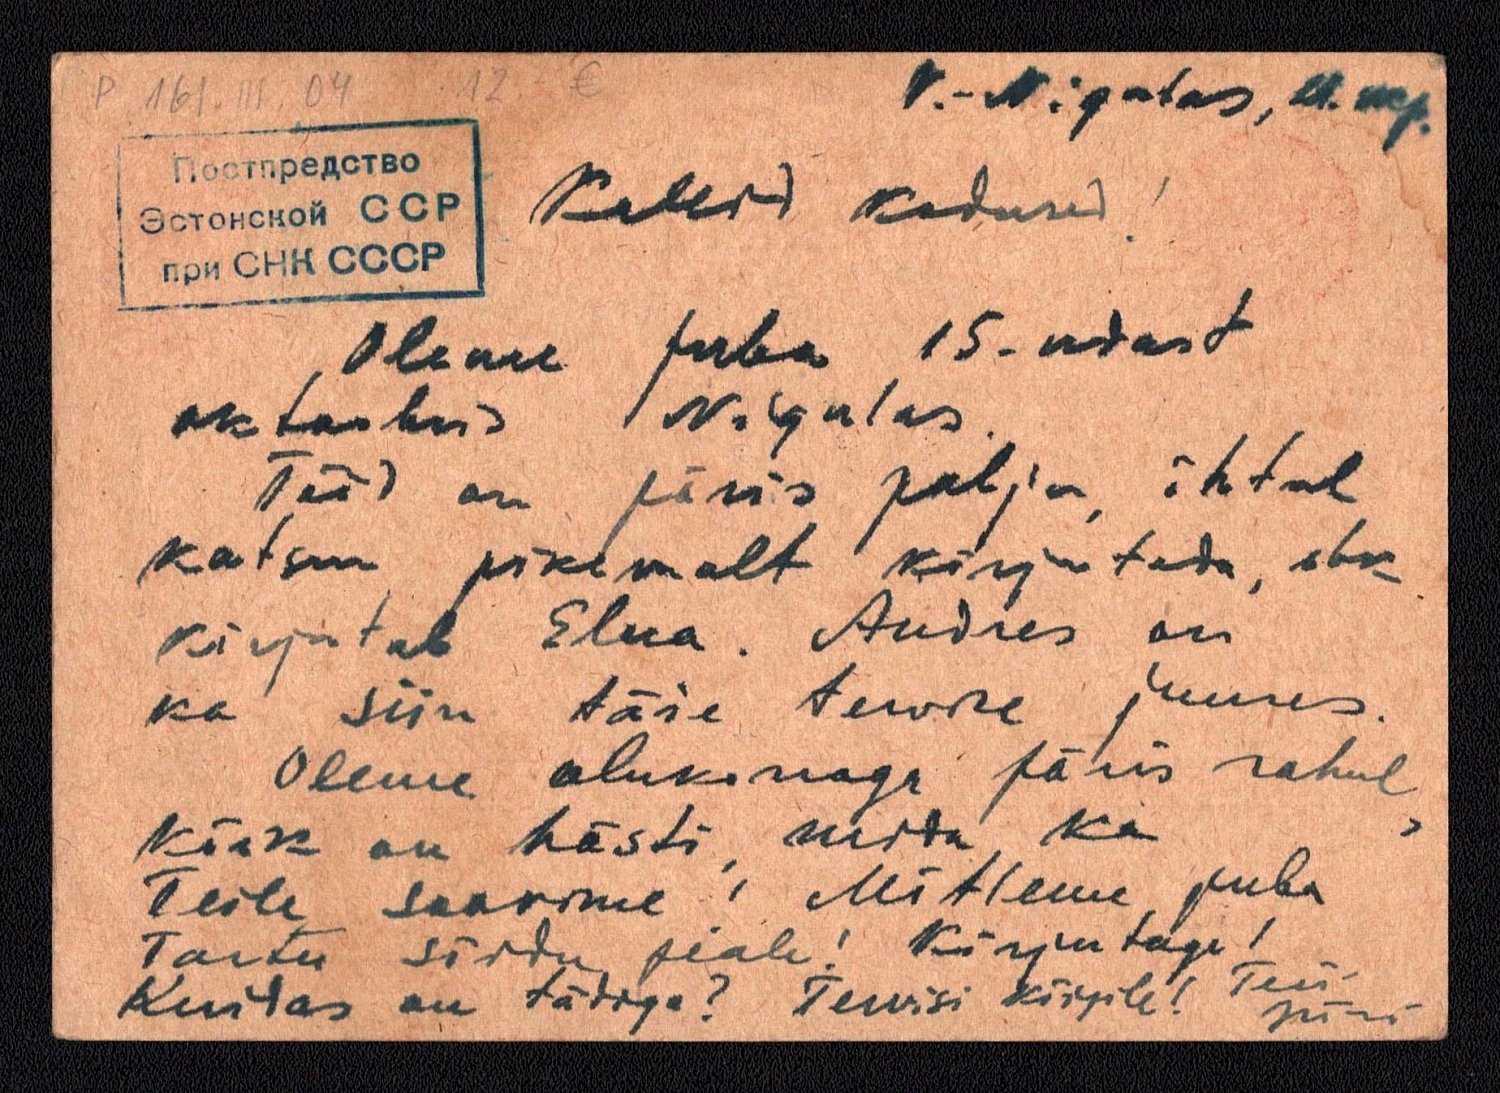 P 161.III.04 12.- €
V.-Nigulas,
Постпредство
Эстонской ССР
при СНК СССР
Kallid kodused!
Oleme juba 15-ndast
oktoobris Nigulas.
Tööd on päris palju, õhtul
katsun pikemalt kirjutada,
kirjutab Elna. Andres on
ka siin täie tervise juures.
Oleme olukorraga päris rahul,
Kõik on hästi, mida ka
Teile soovime! Mõtleme juba
Tartu sõidu peale! Kirjutage!
Kuidas on tädiga? Tervisi kõigile! Teie
Jüri